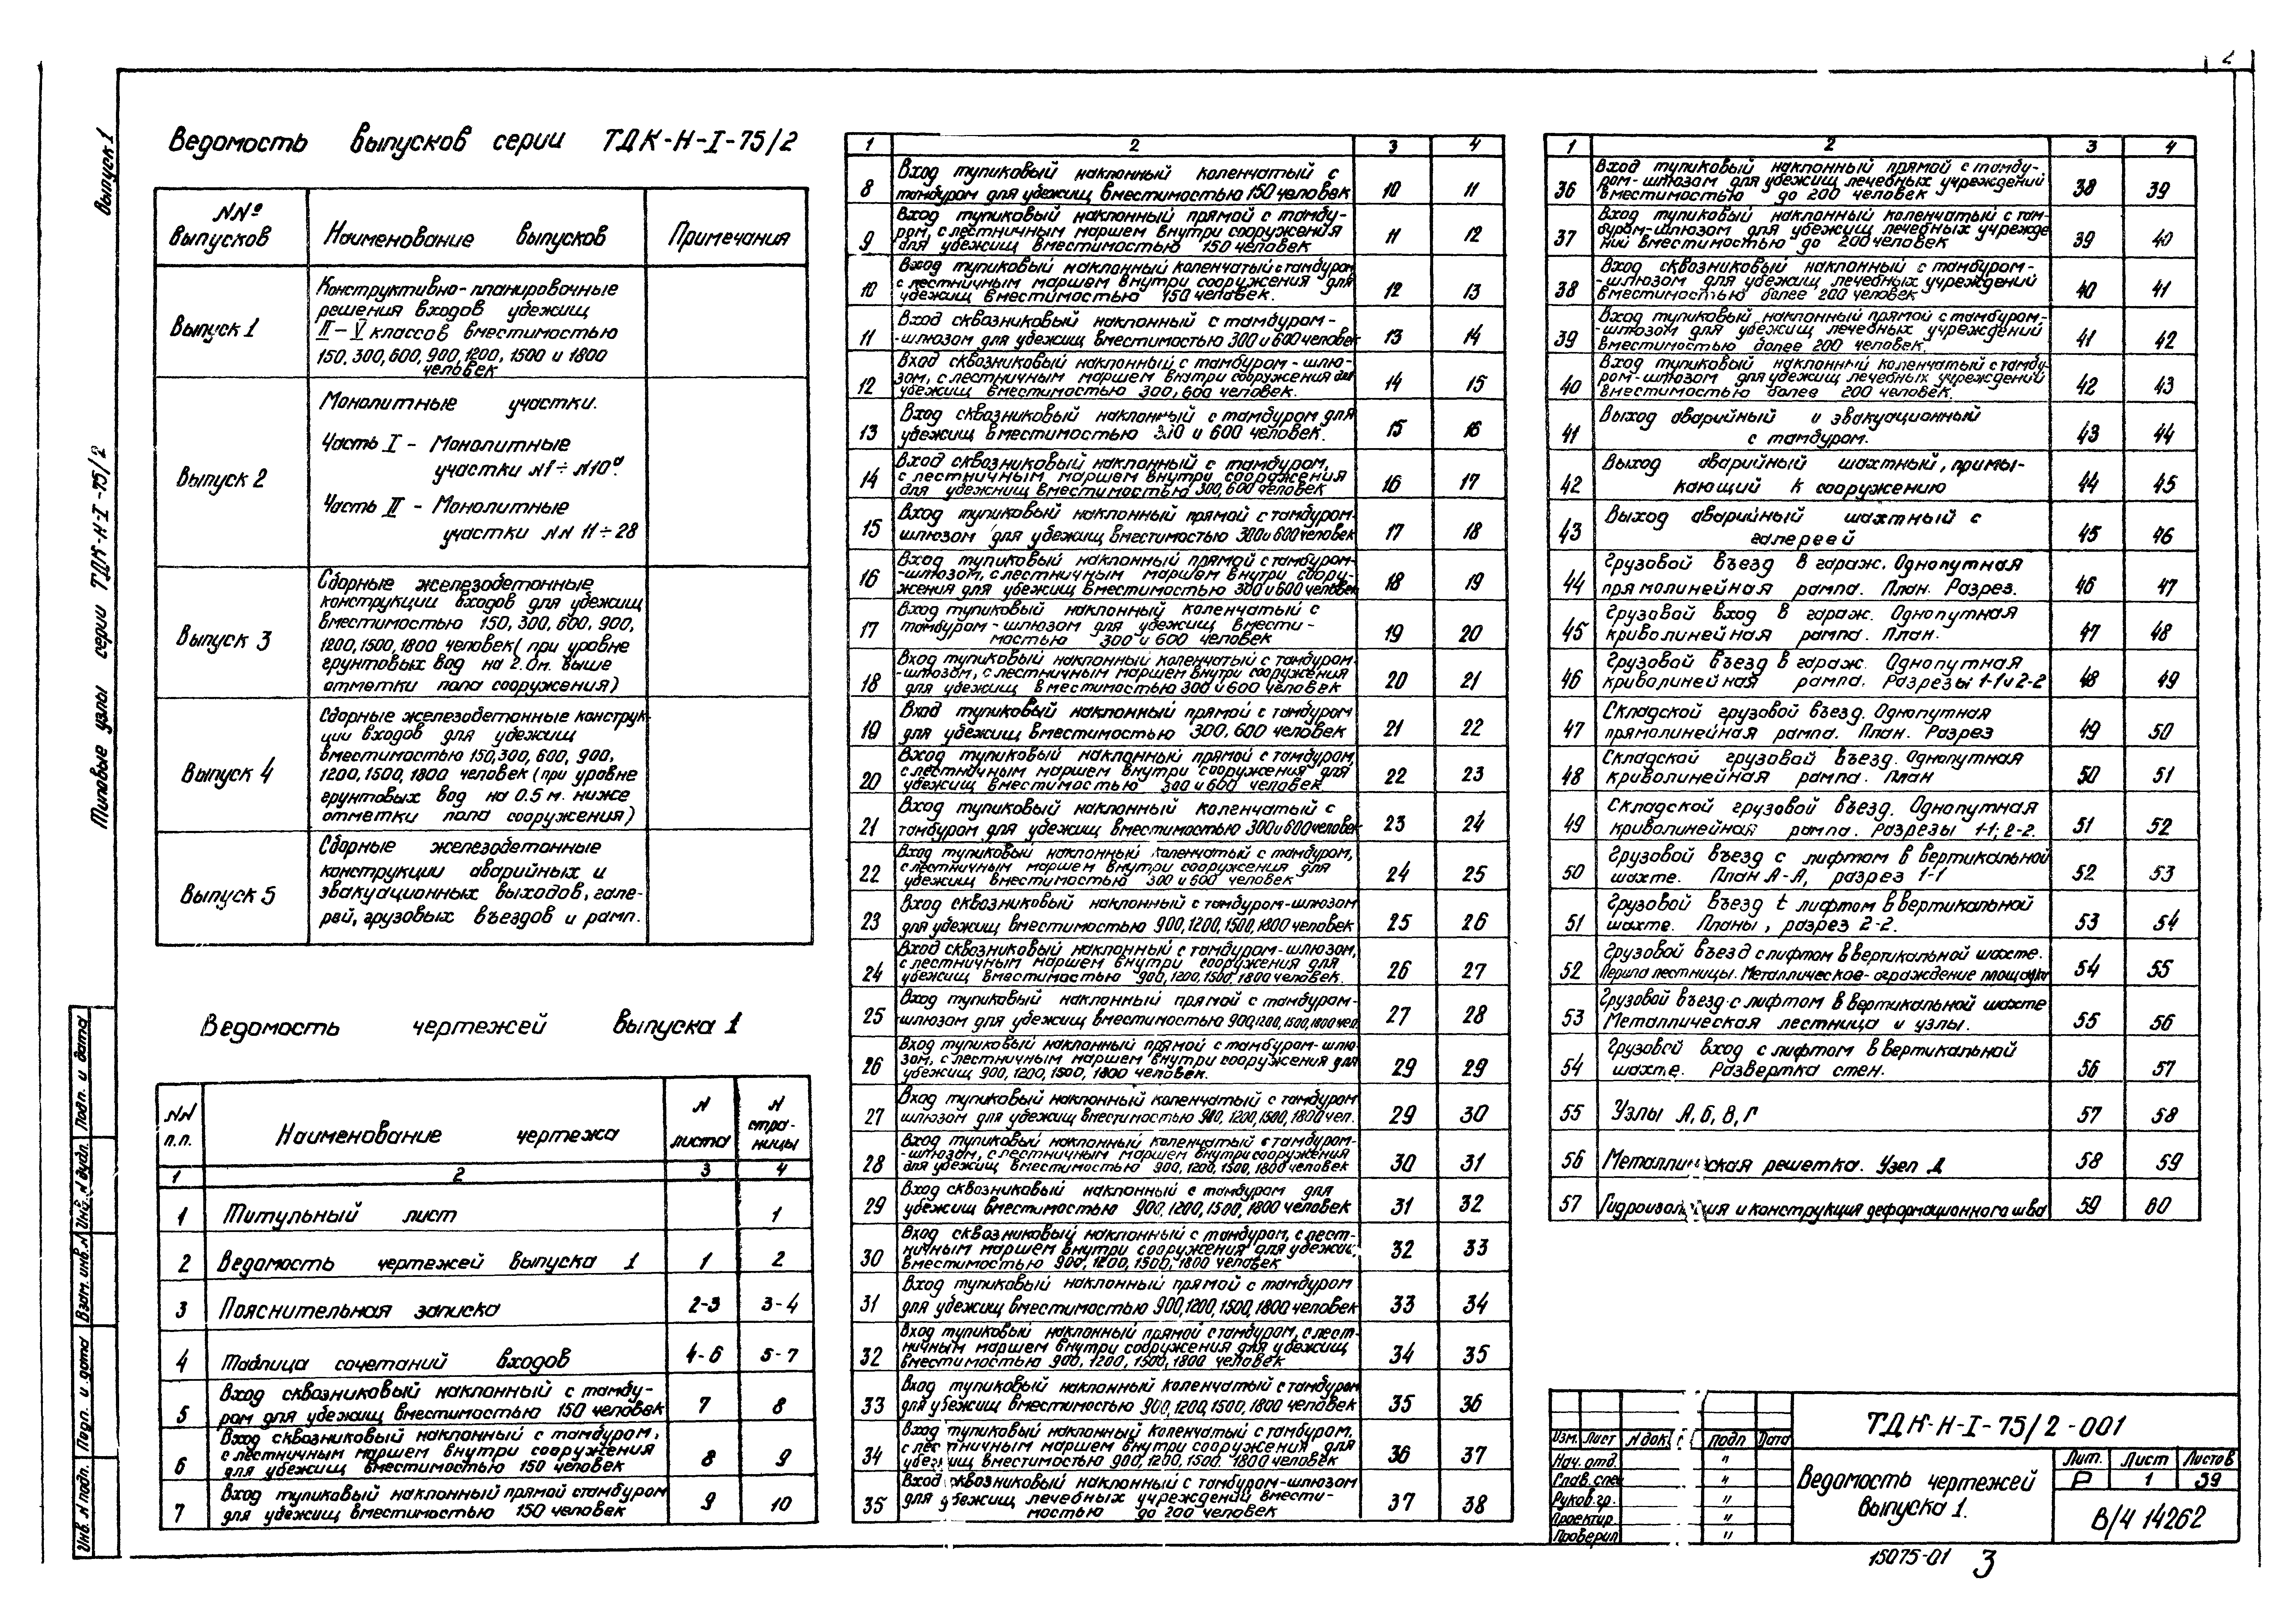 2
Выпуск 1
Типовые узлы серии ТДК-Н-I-75/2
Ведомость выпусков серии ТДК-Н-I-75/2
NNº выпусков
Наименование выпусков
Примечания
Выпуск 1
Конструктивно-планировочные
решения входов убежищ
II-V классов вместимостью
150, 300, 600, 900, 1200, 1500 и 1800
человек
Выпуск 2
Монолитные участки.
Часть I - Монолитные
участки N1÷N10ª
Часть II - Монолитные
участки NN 11÷28
Выпуск 3
Сборные железобетонные
конструкции входов для убежищ
вместимостью 150, 300, 600, 900,
1200, 1500, 1800 человек (при уровне
грунтовых вод на 2.0м. выше
отметки пола сооружения)
Выпуск 4
Сборные железобетонные конструк-
ции входов для убежищ
вместимостью 150, 300, 600, 900,
1200, 1500, 1800 человек (при уровне
грунтовых вод на 0.5 м. ниже
отметки пола сооружения)
Выпуск 5
Сборные железобетонные
конструкции аварийных и
эвакуационных выходов, гале-
рей, грузовых въездов и рамп.
Ведомость чертежей выпуска 1
NN п.п.
Наименование чертежа
N листа
N стра-ницы
1 2 3 4
1 Титульный лист 1
2 Ведомость чертежей выпуска 1 1 2
3 Пояснительная записка 2-3 3-4
4 Таблица сочетаний входов 4-6 5-7
5 Вход сквозниковый наклонный с тамбу-
ром для убежищ вместимостью 150 человек 7 8
6 Вход сквозниковый наклонный с тамбуром,
с лестничным маршем внутри сооружения
для убежищ вместимостью 150 человек 8 9
7 Вход тупиковый наклонный прямой с тамбуром
для убежищ вместимостью 150 человек 9 10
1 2 3 4
8 Вход тупиковый наклонный коленчатый с
тамбуром для убежищ вместимостью 150 человек 10 11
9 Вход тупиковый наклонный прямой с тамбу-
ром, с лестничным маршем внутри сооружения
для убежищ вместимостью 150 человек 11 12
10 Вход тупиковый наклонный коленчатый с тамбуром
с лестничным маршем внутри сооружения для
убежищ вместимостью 150 человек. 12 13
11 Вход сквозниковый наклонный с тамбуром-
-шлюзом для убежищ вместимостью 300 и 600 человек 13 14
12 Вход сквозниковый наклонный с тамбуром-шлю-
зом, с лестничным маршем внутри сооружения для
убежищ вместимостью 300, 600 человек. 14 15
13 Вход сквозниковый наклонный с тамбуром для
убежищ вместимостью 300 и 600 человек. 15 16
14 Вход сквозниковый наклонный с тамбуром,
с лестничным маршем внутри сооружения
для убежищ вместимостью 300, 600 человек 16 17
15 Вход тупиковый наклонный прямой с тамбуром-
шлюзом для убежищ вместимостью 300 и 600 человек 17 18
16 Вход тупиковый наклонный прямой с тамбуром-
-шлюзом, с лестничным маршем внутри соору-
жения для убежищ вместимостью 300 и 600 человек 18 19
17 Вход тупиковый наклонный коленчатый с
тамбуром-шлюзом для убежищ вмести-
мостью 300 и 600 человек 19 20
18 Вход тупиковый наклонный коленчатый с тамбуром-
-шлюзом, с лестничным маршем внутри сооружения
для убежищ вместимостью 300 и 600 человек 20 21
19 Вход тупиковый наклонный прямой с тамбуром
для убежищ вместимостью 300, 600 человек 21 22
20 Вход тупиковый наклонный прямой с тамбуром,
с лестничным маршем внутри сооружения для
убежищ вместимостью 300 и 600 человек 22 23
21 Вход тупиковый наклонный коленчатый с
тамбуром для убежищ вместимостью 300 и 600 человек 23 24
22 Вход тупиковый наклонный коленчатый с тамбуром,
с лестничным маршем внутри сооружения для
убежищ вместимостью 300 и 600 человек 24 25
23 Вход сквозниковый наклонный с тамбуром-шлюзом
для убежищ вместимостью 900, 1200, 1500, 1800 человек 25 26
24 Вход сквозниковый наклонный с тамбуром-шлюзом,
с лестничным маршем внутри сооружения для
убежищ вместимостью 900, 1200, 1500, 1800 человек. 26 27
25 Вход тупиковый наклонный прямой с тамбуром-
шлюзом для убежищ вместимостью 900, 1200, 1500, 1800 чел. 27 28
26 Вход тупиковый наклонный прямой с тамбуром-шлю-
зом, с лестничным маршем внутри сооружения для
убежищ 900, 1200, 1500, 1800 человек. 29 29
27 Вход тупиковый наклонный коленчатый с тамбуром
шлюзом для убежищ вместимостью 900, 1200, 1500, 1800 чел. 29 30
28 Вход тупиковый наклонный коленчатый с тамбуром-
-шлюзом, с лестничным маршем внутри сооружения
для убежищ вместимостью 900, 1200, 1500, 1800 человек 30 31
29 Вход сквозниковый наклонный с тамбуром для
убежищ вместимостью 900, 1200, 1500, 1800 человек 31 32
30 Вход сквозниковый наклонный с тамбуром, с лест-
ничным маршем внутри сооружения для убежищ,
вместимостью 900, 1200, 1500, 1800 человек 32 33
31 Вход тупиковый наклонный прямой с тамбуром
для убежищ вместимостью 900, 1200, 1500, 1800 человек 33 34
32 Вход тупиковый наклонный прямой с тамбуром, с лест-
ничным маршем внутри сооружения для убежищ
вместимостью 900, 1200, 1500, 1800 человек 34 35
33 Вход тупиковый наклонный коленчатый с тамбуром
для убежищ вместимостью 900, 1200, 1500, 1800 человек 35 36
34 Вход тупиковый наклонный коленчатый с тамбуром,
с лестничным маршем внутри сооружения для
убежищ вместимостью 900, 1200, 1500, 1800 человек 36 37
35 Вход сквозниковый наклонный с тамбуром-шлюзом
для убежищ лечебных учреждений, вмести-
мостью до 200 человек 37 38
1 2 3 4
36 Вход тупиковый наклонный прямой с тамбу-
ром-шлюзом для убежищ лечебных учреждений
вместимостью до 200 человек 38 39
37 Вход тупиковый наклонный коленчатый с там-
буром-шлюзом для убежищ лечебных учрежде
ний вместимостью до 200 человек 39 40
38 Вход сквозниковый наклонный с тамбуром-
-шлюзом для убежищ лечебных учреждений
вместимостью более 200 человек 40 41
39 Вход тупиковый наклонный прямой с тамбуром-
-шлюзом для убежищ лечебных учреждений
вместимостью более 200 человек. 41 42
40 Вход тупиковый наклонный коленчатый с тамбу-
ром-шлюзом для убежищ лечебных учреждений
вместимостью более 200 человек. 42 43
41 Выход аварийный и эвакуационный
с тамбуром. 43 44
42 Выход аварийный шахтный, примы-
кающий к сооружению 44 45
43 Выход аварийный шахтный с
галереей 45 46
44 Грузовой въезд в гараж. Однопутная
прямолинейная рампа. План. Разрез. 46 47
45 Грузовой вход в гараж. Однопутная
криволинейная рампа. План. 47 48
46 Грузовой въезд в гараж. Однопутная
криволинейная рампа. Разрезы 1-1 и 2-2 48 49
47 Складской грузовой въезд. Однопутная
прямолинейная рампа. План. Разрез 49 50
48 Складской грузовой въезд. Однопутная
криволинейная рампа. План 50 51
49 Складской грузовой въезд. Однопутная
криволинейная рампа. Разрезы 1-1; 2-2. 51 52
50 Грузовой въезд с лифтом в вертикальной
шахте. План А-А, разрез 1-1 52 53
51 Грузовой въезд с лифтом в вертикальной
шахте. Планы, разрез 2-2. 53 54
52 Грузовой въезд с лифтом в вертикальной шахте.
Перила лестницы. Металлическое ограждение площадки 54 55
53 Грузовой въезд с лифтом в вертикальной шахте
Металлическая лестница и узлы. 55 56
54 Грузовой вход с лифтом в вертикальной
шахте. Развертка стен. 56 57
55 Узлы А, Б, В, Г 57 58
56 Металлическая решетка. Узел Д 58 59
57 Гидроизоляция и конструкция деформационного шва 59 60
Инв. N подл.
Подп. и дата
Взам. инв. N
Инв. N дубл.
Подп. и дата
Изм. Лист N док. Подп Дата
Нач. отд. "
Глав. спец "
Руков. гр. "
Проектир. "
Проверил "
ТДК-Н-I-75/2-001
Ведомость чертежей
выпуска 1.
Лит. Лист Листов
Р 1 59
В/Ч 14262
15075-01 3